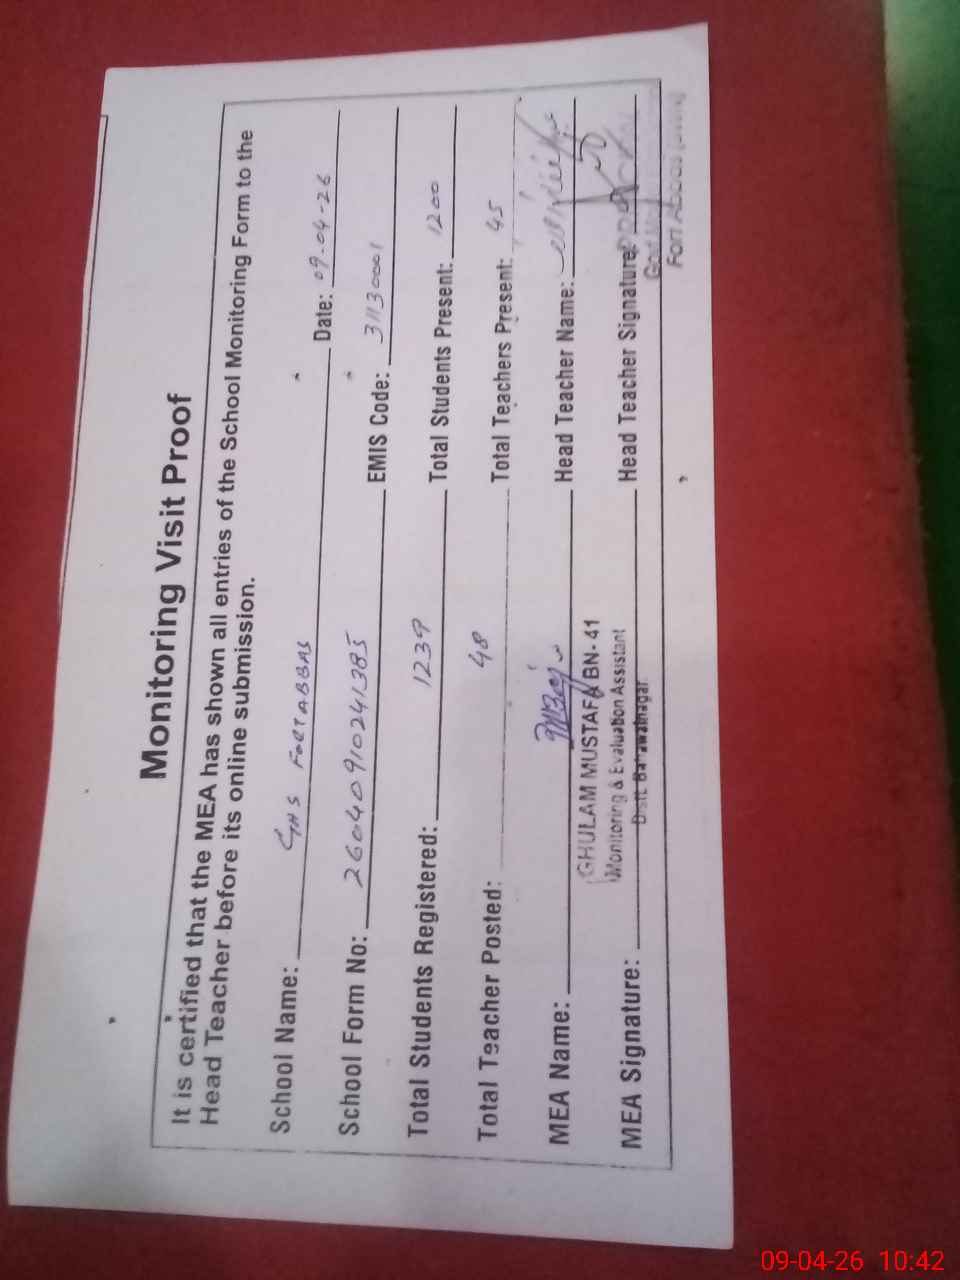 Monitoring Visit Proof
It is certified that the MEA has shown all entries of the School Monitoring Form to the
Head Teacher before its online submission.
School Name: GHS FORTABBAS Date: 09-04-26
School Form No: 26040910241385 EMIS Code: 31130001
Total Students Registered: 1239 Total Students Present: 1200
Total Teacher Posted: 48 Total Teachers Present: 45
MEA Name: Head Teacher Name:
GHULAM MUSTAFA BN-41
Monitoring & Evaluation Assistant
Distt. Bahawalnagar
MEA Signature: Head Teacher Signature:
Fort Abbas
09-04-26 10:42